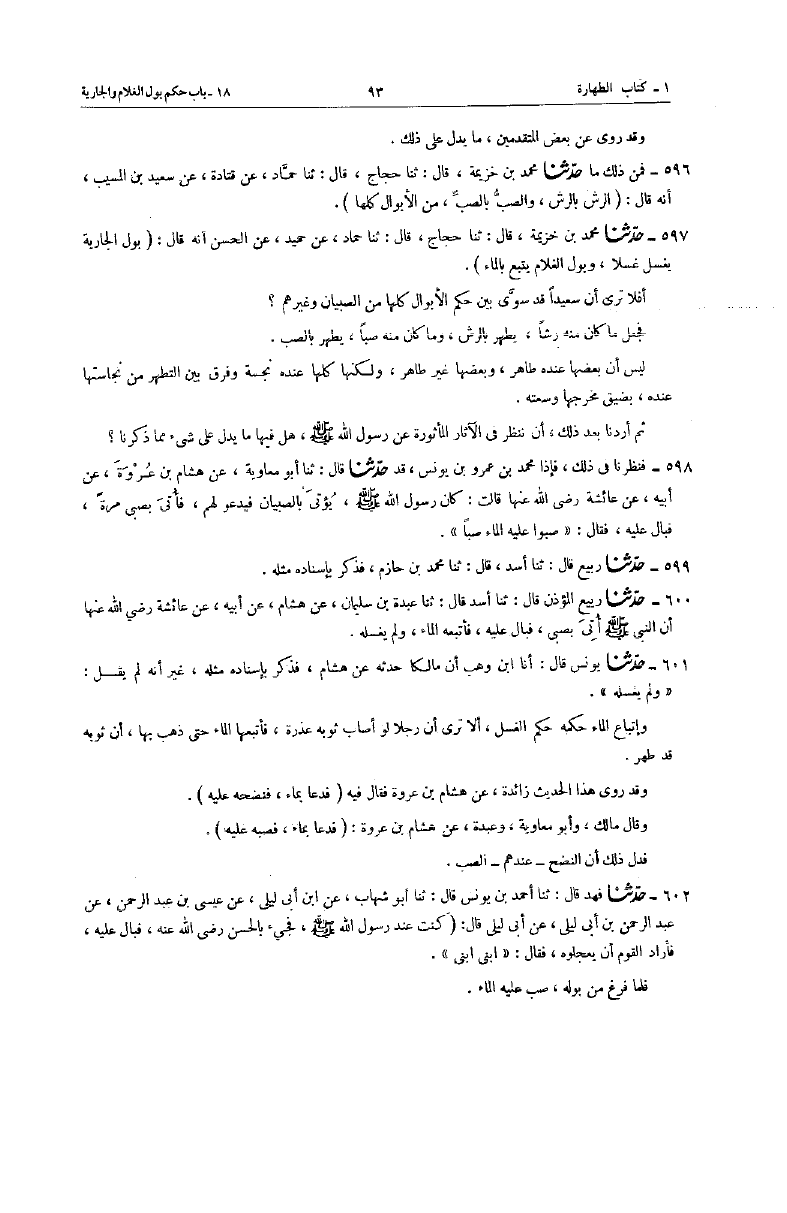 ١ ـ كتاب الطهارة ٩٣ ١٨ - باب حكم بول الغلام والجارية
وقد روى عن بعض المتقدمين ، ما يدل على ذلك .
٥٩٦ ـ فمن ذلك ما حدثنا محمد بن خزيمة ، قال : ثنا حجاج ، قال : ثنا حمَّاد ، عن قتادة ، عن سعيد بن المسيب ،
أنه قال : ( الرش بالرش ، والصبُّ بالصبِّ ، من الأبوال كلها ) .
٥٩٧ ـ حدّثنا محمد بن خزيمة ، قال : ثنا حجاج ، قال : ثنا حماد ، عن حميد ، عن الحسن أنه قال : ( بول الجارية
يغسل غسلا ، وبول الغلام يتبع بالماء ) .
أفلا ترى أن سعيداً قد سوَّى بين حكم الأبوال كلها من الصبيان وغيرهم ؟
فجعل ما كان منه رشاً ، يطهر بالرش ، وما كان منه صباً ، يطهر بالصب .
ليس أن بعضها عنده طاهر ، وبعضها غير طاهر ، ولكنها كلها عنده نجسة وفرق بين التطهر من نجاستها
عنده ، بضيق مخرجها وسعته .
ثم أردنا بعد ذلك ، أن ننظر فى الآثار المأثورة عن رسول الله ﷺ ، هل فيها ما يدل على شىء مما ذكرنا ؟
٥٩٨ ـ فنظرنا فى ذلك ، فإذا محمد بن عمرو بن يونس ، قد حدّثنا قال : ثنا أبو معاوية ، عن هشام بن عُرْوَةَ ، عن
أبيه ، عن عائشة رضى الله عنها قالت : كان رسول الله ﷺ ، يُؤتىَ بالصبيان فيدعو لهم ، فأُتىَ بصبي مرةً ،
فبال عليه ، فقال : « صبوا عليه الماء صباً » .
٥٩٩ ـ حدّثنا ربيع قال : ثنا أسد ، قال : ثنا محمد بن حازم ، فذكر بإسناده مثله .
٦٠٠ ـ حدّثنا ربيع المؤذن قال : ثنا أسد قال : ثنا عبدة بن سليمان ، عن هشام ، عن أبيه ، عن عائشة رضي الله عنها
أن النبي ﷺ أُتِىَ بصبي ، فبال عليه ، فأتبعه الماء ، ولم يغسله .
٦٠١ ـ حدّثنا يونس قال : أنا ابن وهب أن مالكا حدثه عن هشام ، فذكر بإسناده مثله ، غير أنه لم يقـــل :
« ولم يغسله » .
وإتباع الماء حكمه حكم الغسل ، ألا ترى أن رجلا لو أصاب ثوبه عذرة ، فأتبعها الماء حتى ذهب بها ، أن ثوبه
قد طهر .
وقد روى هذا الحديث زائدة ، عن هشام بن عروة فقال فيه ( فدعا بماء ، فنضحه عليه ) .
وقال مالك ، وأبو معاوية ، وعبدة ، عن هشام بن عروة : ( فدعا بماء ، فصبه عليه ) .
فدل ذلك أن النضح ـ عندهم ـ الصب .
٦٠٢ ـ حدّثنا فهد قال : ثنا أحمد بن يونس قال : ثنا أبو شهاب ، عن ابن أبى ليلى ، عن عيسى بن عبد الرحمن ، عن
عبد الرحمن بن أبي ليلى ، عن أبي ليلى قال: ( كنت عند رسول الله ﷺ ، فجيء بالحسن رضى الله عنه ، فبال عليه ،
فأراد القوم أن يعجلوه ، فقال : « ابنى ابنى » .
فلما فرغ من بوله ، صب عليه الماء .